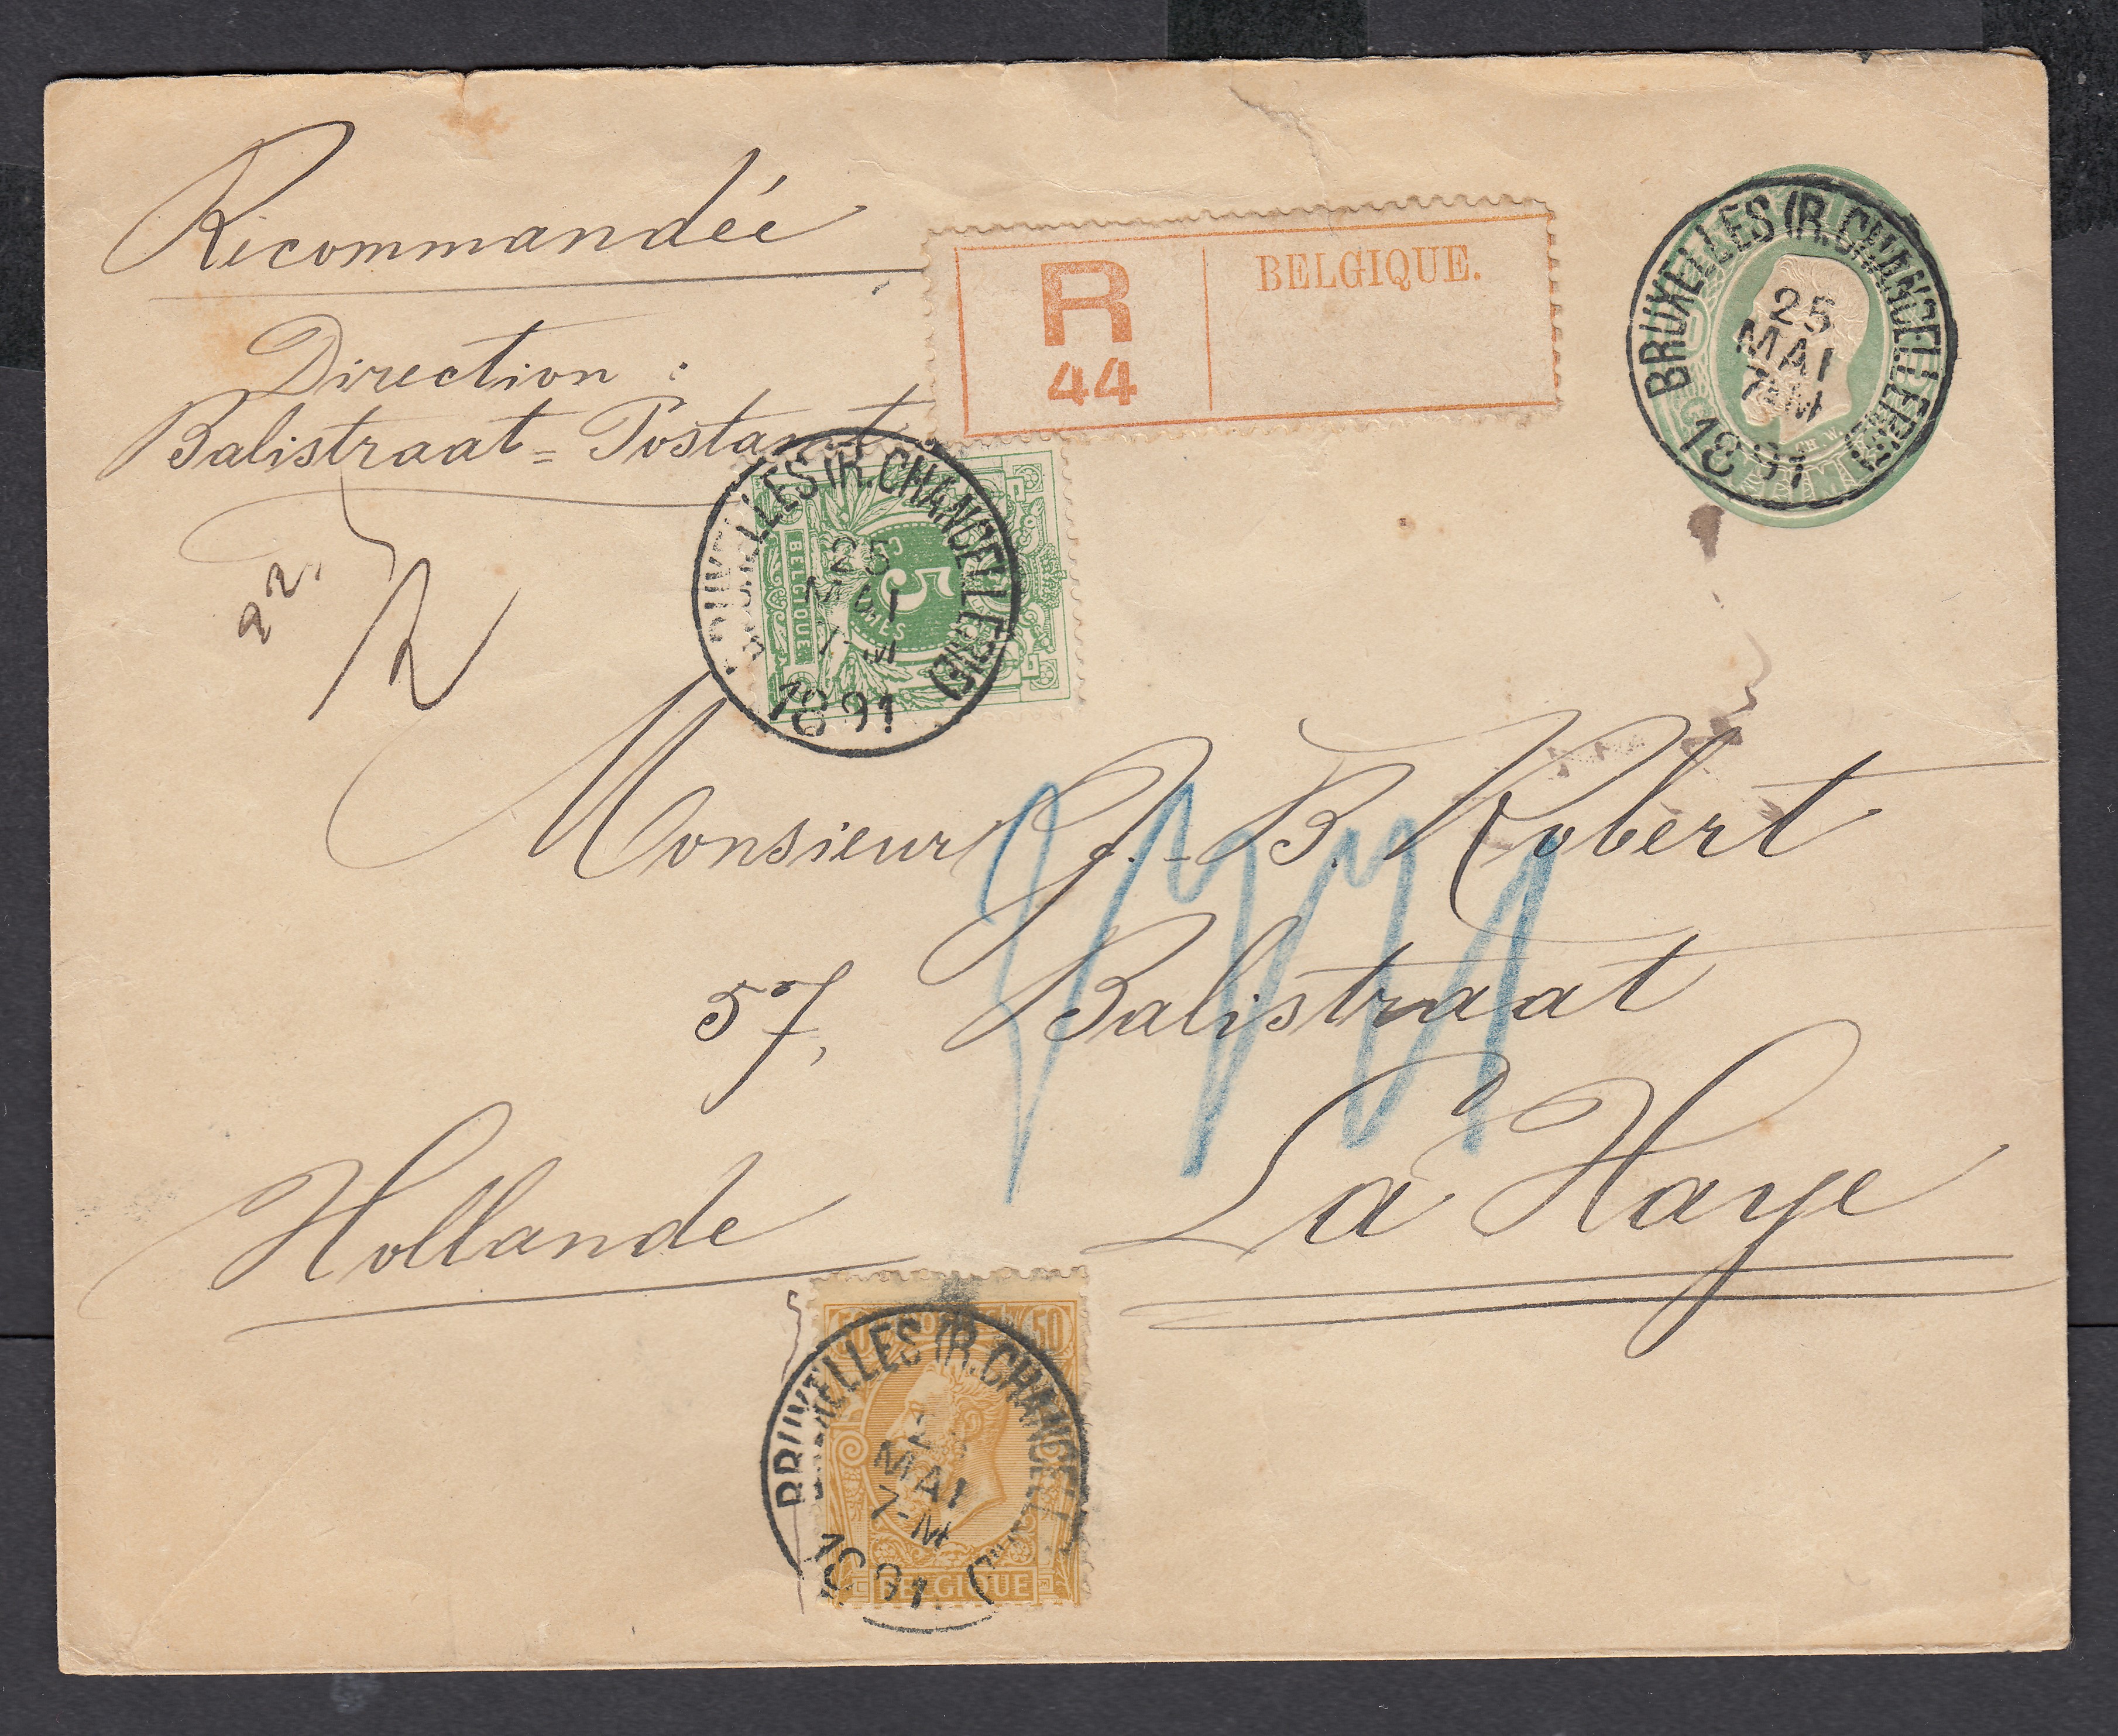 Recommandée
Direction :
Balistraat = Postant
R
44
BELGIQUE.
BRUXELLES (R. CHANCELLERIE)
25
MAI
7-M
1891
BRUXELLES (R. CHANCELLERIE)
25
MAI
7-M
1891
5
CES
BELGIQUE
22.
Monsieur J.-B. Robert
57, Balistraat
La Haye
Hollande
50 50
BRUXELLES (R. CHANCEL
MAI
7-M
1891
BELGIQUE